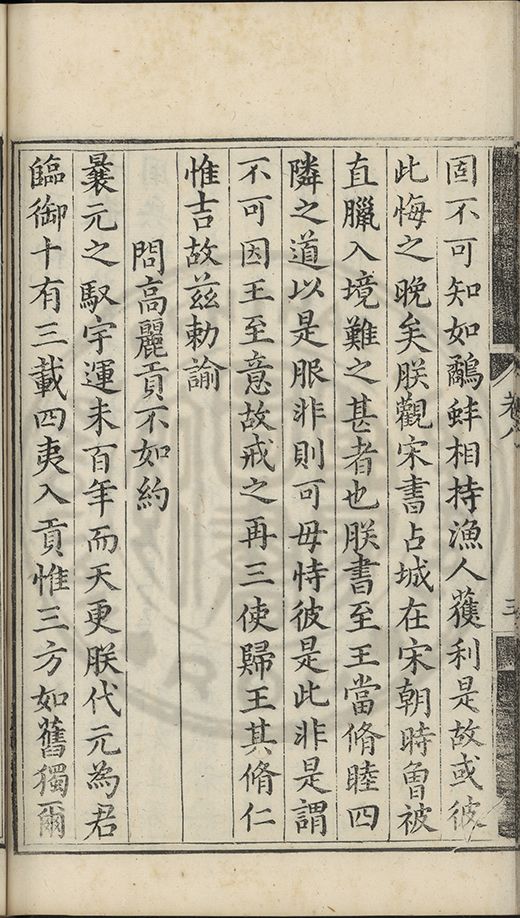 固不可知如鷸蚌相持漁人獲利是故或彼
此悔之晚矣朕觀宋書占城在宋朝時曾被
直臘入境難之甚者也朕書至王當脩睦四
隣之道以是服非則可毋恃彼是此非是謂
不可因王至意故戒之再三使歸王其脩仁
惟吉故茲勅諭
問高麗貢不如約
曩元之馭宇運未百年而天更朕代元為君
臨御十有三載四夷入貢惟三方如舊獨爾
卷八